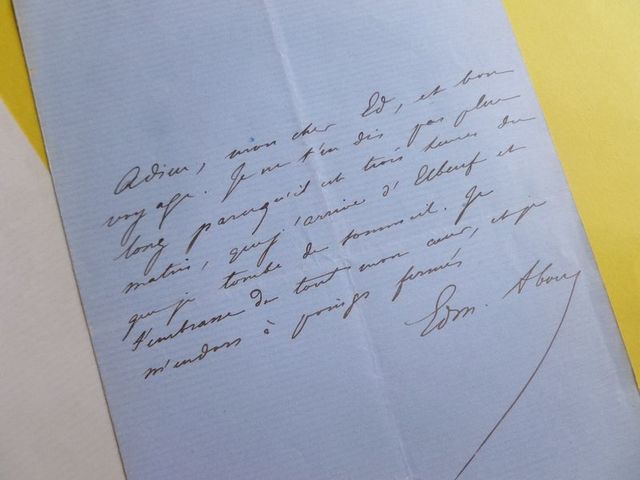 Adieu, mon cher Ed, et bon
voyage. Je ne t'en dis pas plus
long parcequ'il est trois heures du
matin, que j'arrive d'Elbeuf et
que je tombe de sommeil. Je
t'embrasse de tout mon cœur, et je
m'endors à poings fermés
Edm. About